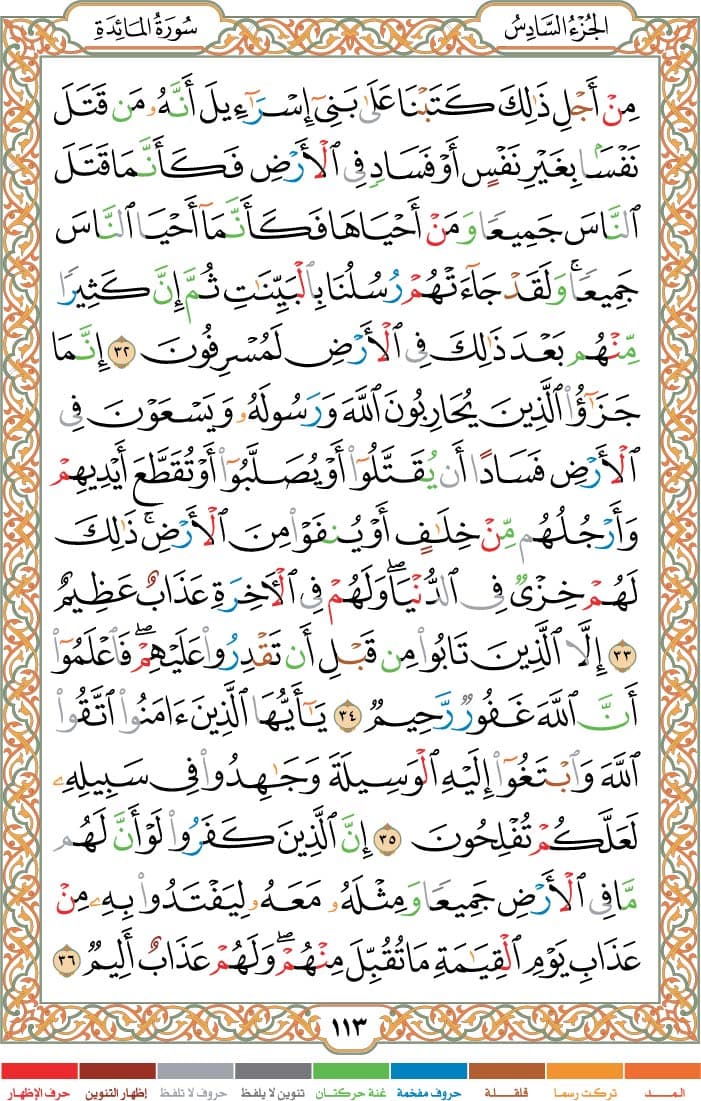 الجُزْءُ السَّادِسُ
سُورَةُ المَائِدَةِ
مِنْ أَجْلِ ذَٰلِكَ كَتَبْنَا عَلَىٰ بَنِىٓ إِسْرَٰٓءِيلَ أَنَّهُۥ مَن قَتَلَ
نَفْسًۢا بِغَيْرِ نَفْسٍ أَوْ فَسَادٍ فِى ٱلْأَرْضِ فَكَأَنَّمَا قَتَلَ
ٱلنَّاسَ جَمِيعًا وَمَنْ أَحْيَاهَا فَكَأَنَّمَآ أَحْيَا ٱلنَّاسَ
جَمِيعًا ۚ وَلَقَدْ جَآءَتْهُمْ رُسُلُنَا بِٱلْبَيِّنَٰتِ ثُمَّ إِنَّ كَثِيرًا
مِّنْهُم بَعْدَ ذَٰلِكَ فِى ٱلْأَرْضِ لَمُسْرِفُونَ ٣٢ إِنَّمَا
جَزَٰٓؤُا۟ ٱلَّذِينَ يُحَارِبُونَ ٱللَّهَ وَرَسُولَهُۥ وَيَسْعَوْنَ فِى
ٱلْأَرْضِ فَسَادًا أَن يُقَتَّلُوٓا۟ أَوْ يُصَلَّبُوٓا۟ أَوْ تُقَطَّعَ أَيْدِيهِمْ
وَأَرْجُلُهُم مِّنْ خِلَٰفٍ أَوْ يُنفَوْا۟ مِنَ ٱلْأَرْضِ ۚ ذَٰلِكَ
لَهُمْ خِزْىٌ فِى ٱلدُّنْيَا ۖ وَلَهُمْ فِى ٱلْءَاخِرَةِ عَذَابٌ عَظِيمٌ
٣٣ إِلَّا ٱلَّذِينَ تَابُوا۟ مِن قَبْلِ أَن تَقْدِرُوا۟ عَلَيْهِمْ ۖ فَٱعْلَمُوٓا۟
أَنَّ ٱللَّهَ غَفُورٌ رَّحِيمٌ ٣٤ يَٰٓأَيُّهَا ٱلَّذِينَ ءَامَنُوا۟ ٱتَّقُوا۟
ٱللَّهَ وَٱبْتَغُوٓا۟ إِلَيْهِ ٱلْوَسِيلَةَ وَجَٰهِدُوا۟ فِى سَبِيلِهِۦ
لَعَلَّكُمْ تُفْلِحُونَ ٣٥ إِنَّ ٱلَّذِينَ كَفَرُوا۟ لَوْ أَنَّ لَهُم
مَّا فِى ٱلْأَرْضِ جَمِيعًا وَمِثْلَهُۥ مَعَهُۥ لِيَفْتَدُوا۟ بِهِۦ مِنْ
عَذَابِ يَوْمِ ٱلْقِيَٰمَةِ مَا تُقُبِّلَ مِنْهُمْ ۖ وَلَهُمْ عَذَابٌ أَلِيمٌ ٣٦
١١٣
المـــد
تركت رسما
قلقـــلة
حروف مفخمة
غنة حركتان
تنوين لا يلفظ
حروف لا تلفظ
إظهار التنوين
حرف الإظهار